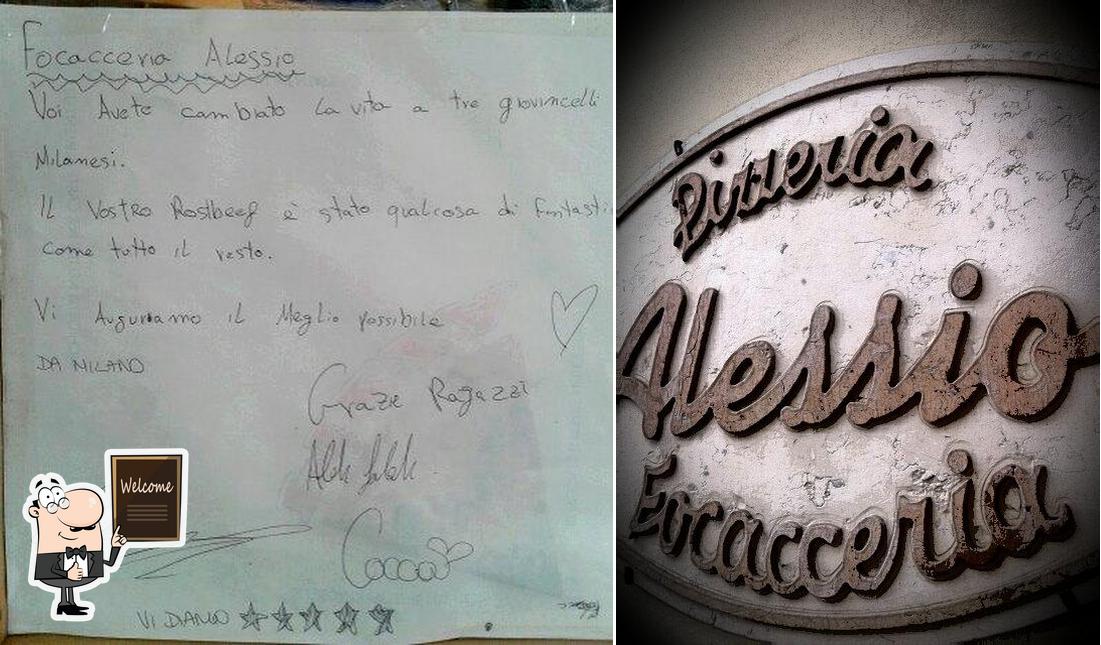 Focacceria Alessio
Voi Avete cambiato la vita a tre giovincelli
Milanesi.
Il Vostro Rostbeef è stato qualcosa di fantasti
come tutto il resto.
Vi Auguriamo il Meglio possibile
DA MILANO
Grazie Ragazzi
VI DIAMO
Welcome
Pizzeria
Alessio
Focacceria